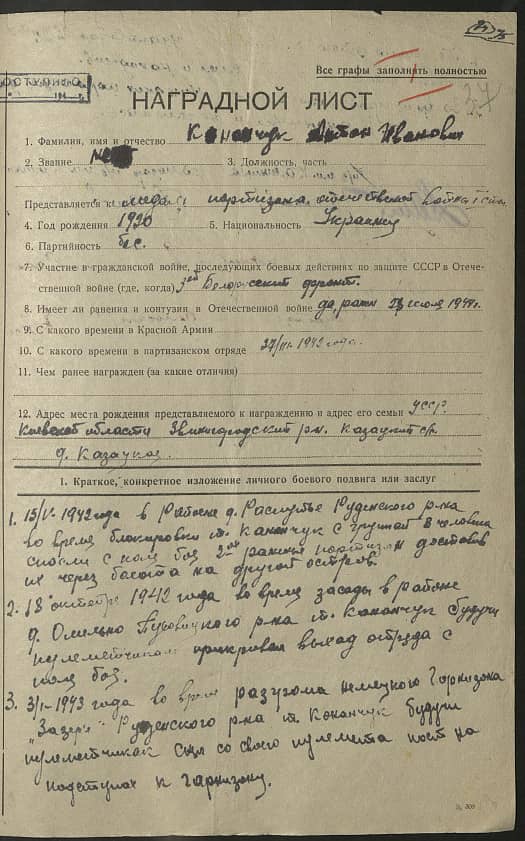 Все графы заполнять полностью
НАГРАДНОЙ ЛИСТ
1. Фамилия, имя и отчество Конончук Антон Иванович
2. Звание нет 3. Должность, часть
Представляется к медали партизана отечественной войны I ст.
4. Год рождения 1920 5. Национальность Украинец
6. Партийность б/п.
7. Участие в гражданской войне, последующих боевых действиях по защите СССР в Отече-
ственной войне (где, когда) 3ий Белорусский фронт.
8. Имеет ли ранения и контузии в Отечественной войне да, июля 1944г.
9. С какого времени в Красной Армии
10. С какого времени в партизанском отряде 1942 года.
11. Чем ранее награжден (за какие отличия)
12. Адрес места рождения представляемого к награждению и адрес его семьи УССР
Киевской области Звенигородский р-н. Казацкий с/с
д. Казацкое
1. Краткое, конкретное изложение личного боевого подвига или заслуг
1. 1942 года в районе д. Руденского р-на
во время блокировки т. Конончук с группой 8 человека
с поля боя 2ое раненых партизан доставив
их через болота на другой остров.
2. 18 октября 1942 года во время засады в районе
д. Омельно Пуховичского р-на т. Конончук будучи
пулеметчиком прикрывал выход отряда с
поля боя.
3. 1943 года во время разгрома немецкого Гарнизона
Руденского р-на т. Конончук будучи
пулеметчиком снял со своего пулемета пост на
подступах к гарнизону.